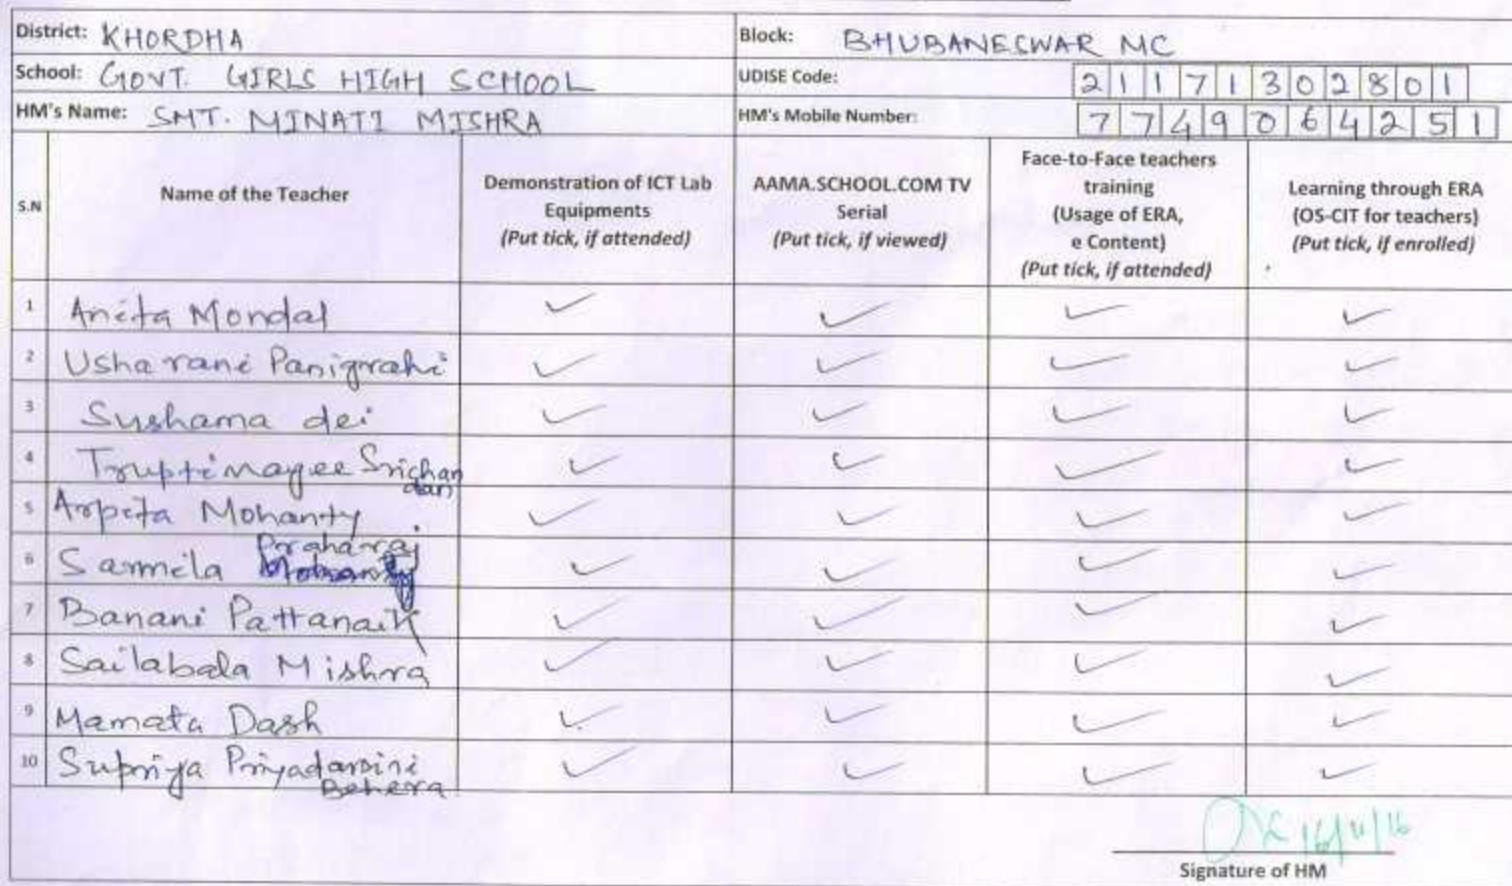 District: KHORDHA Block: BHUBANESWAR MC
School: GOVT. GIRLS HIGH SCHOOL UDISE Code: 21171302801
HM's Name: SMT. MINATI MISHRA HM's Mobile Number: 7749064251
S.N Name of the Teacher Demonstration of ICT Lab Equipments (Put tick, if attended) AAMA.SCHOOL.COM TV Serial (Put tick, if viewed) Face-to-Face teachers training (Usage of ERA, e Content) (Put tick, if attended) Learning through ERA (OS-CIT for teachers) (Put tick, if enrolled)
1 Anita Mondal ✓ ✓ ✓ ✓
2 Usha rani Panigrahi ✓ ✓ ✓ ✓
3 Sushama dei ✓ ✓ ✓ ✓
4 Truptimayee Srichandan ✓ ✓ ✓ ✓
5 Arpita Mohanty ✓ ✓ ✓ ✓
6 Sarmila Praharaj ✓ ✓ ✓ ✓
7 Banani Pattanaik ✓ ✓ ✓ ✓
8 Sailabala Mishra ✓ ✓ ✓ ✓
9 Mamata Dash ✓ ✓ ✓ ✓
10 Supriya Priyadarsini Behera ✓ ✓ ✓ ✓
Signature of HM